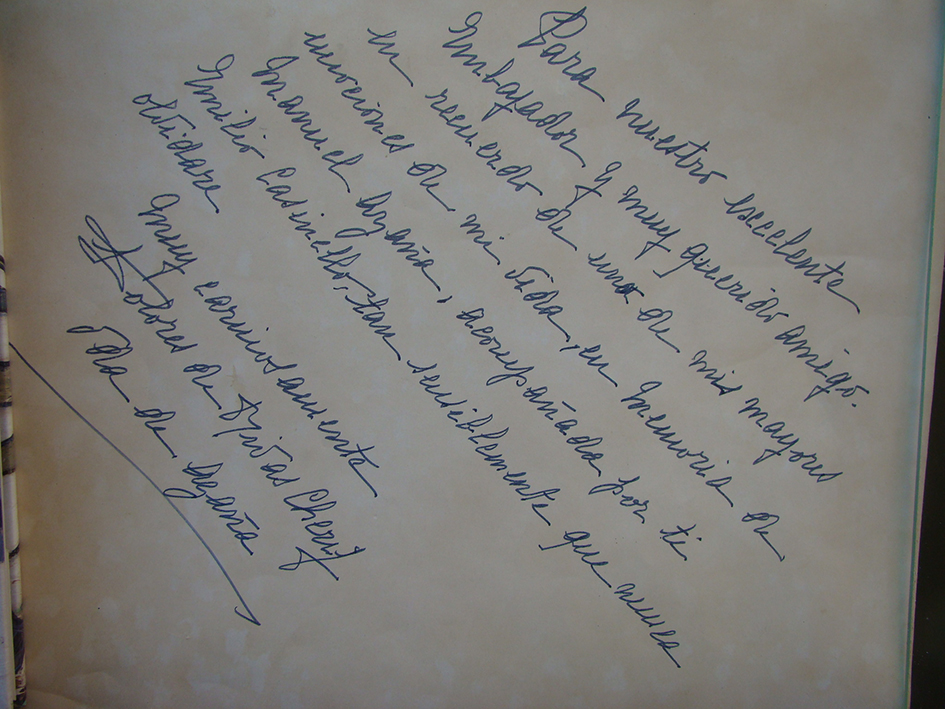 Para nuestro excelente
Embajador y muy querido amigo.
en recuerdo de una de mis mayores
emociones de mi vida, en memoria de
Manuel Azaña, acompañada por ti
Emilio Casinello, tan sensiblemente que nunca
olvidare
Muy cariñosamente
Dolores de Rivas Cherif
Vda de Azaña